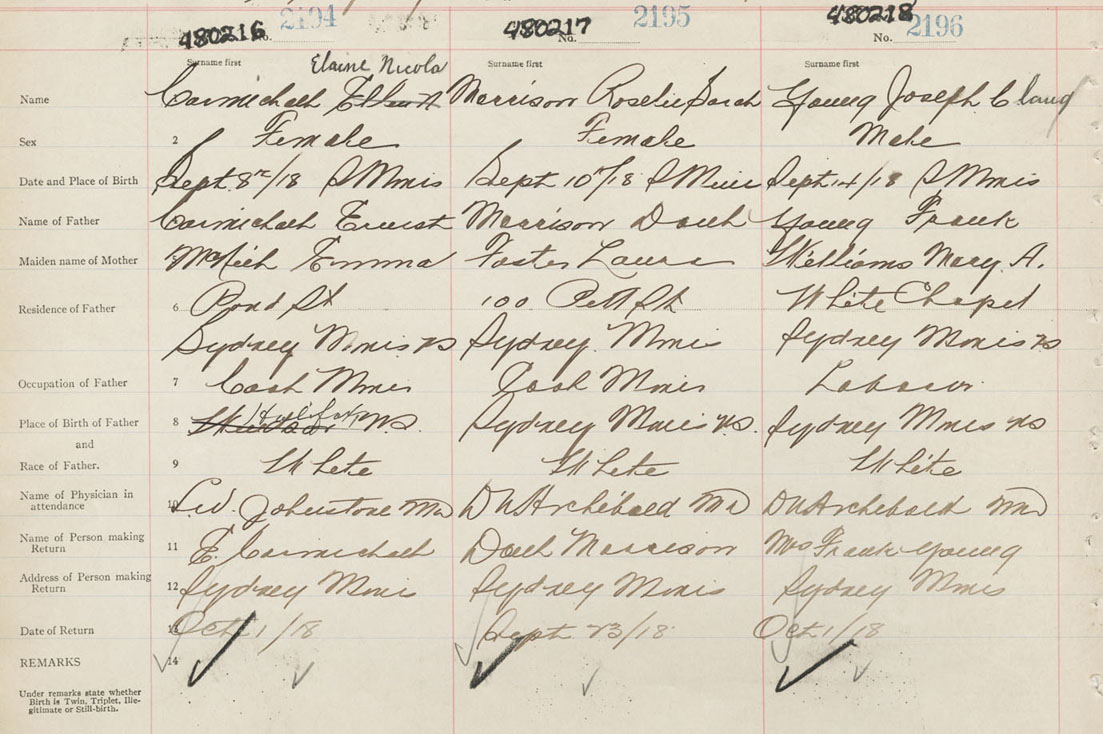 480216 480217 480218
No. 2194 No. 2195 No. 2196
Surname first Surname first Surname first
Elaine Nicola
Name Carmichael Morrison Roselie Sarah Young Joseph Claud
Sex 2 Female Female Male
Date and Place of Birth Sept 8th/18 S Mines Sept 10th/18 S Mines Sept 14/18 S Mines
Name of Father Carmichael Ernest Morrison Young Frank
Maiden name of Mother 5 Emma Foster Laura Williams Mary A.
Residence of Father 6 Pond St 100 Pitt St White Chapel
Sydney Mines NS Sydney Mines Sydney Mines NS
Occupation of Father 7 Coal Miner Coal Miner Laborer
Halifax
Place of Birth of Father 8 N.S. Sydney Mines N.S. Sydney Mines NS
and
Race of Father. 9 White White White
Name of Physician in
attendance 10 Johnstone MD Archibald MD Archibald MD
Name of Person making
Return 11 E. Carmichael Morrison Mrs Frank Young
Address of Person making
Return 12 Sydney Mines Sydney Mines Sydney Mines
Date of Return 13 Oct 1/18 Sept 23/18 Oct 1/18
REMARKS 14
Under remarks state whether
Birth is Twin, Triplet, Ille-
gitimate or Still-birth.